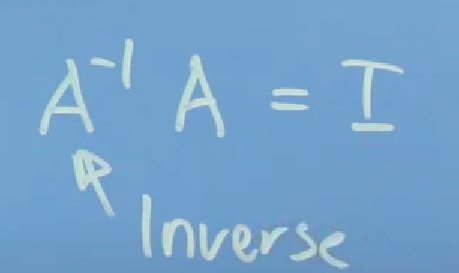 A⁻¹ A = I
Inverse